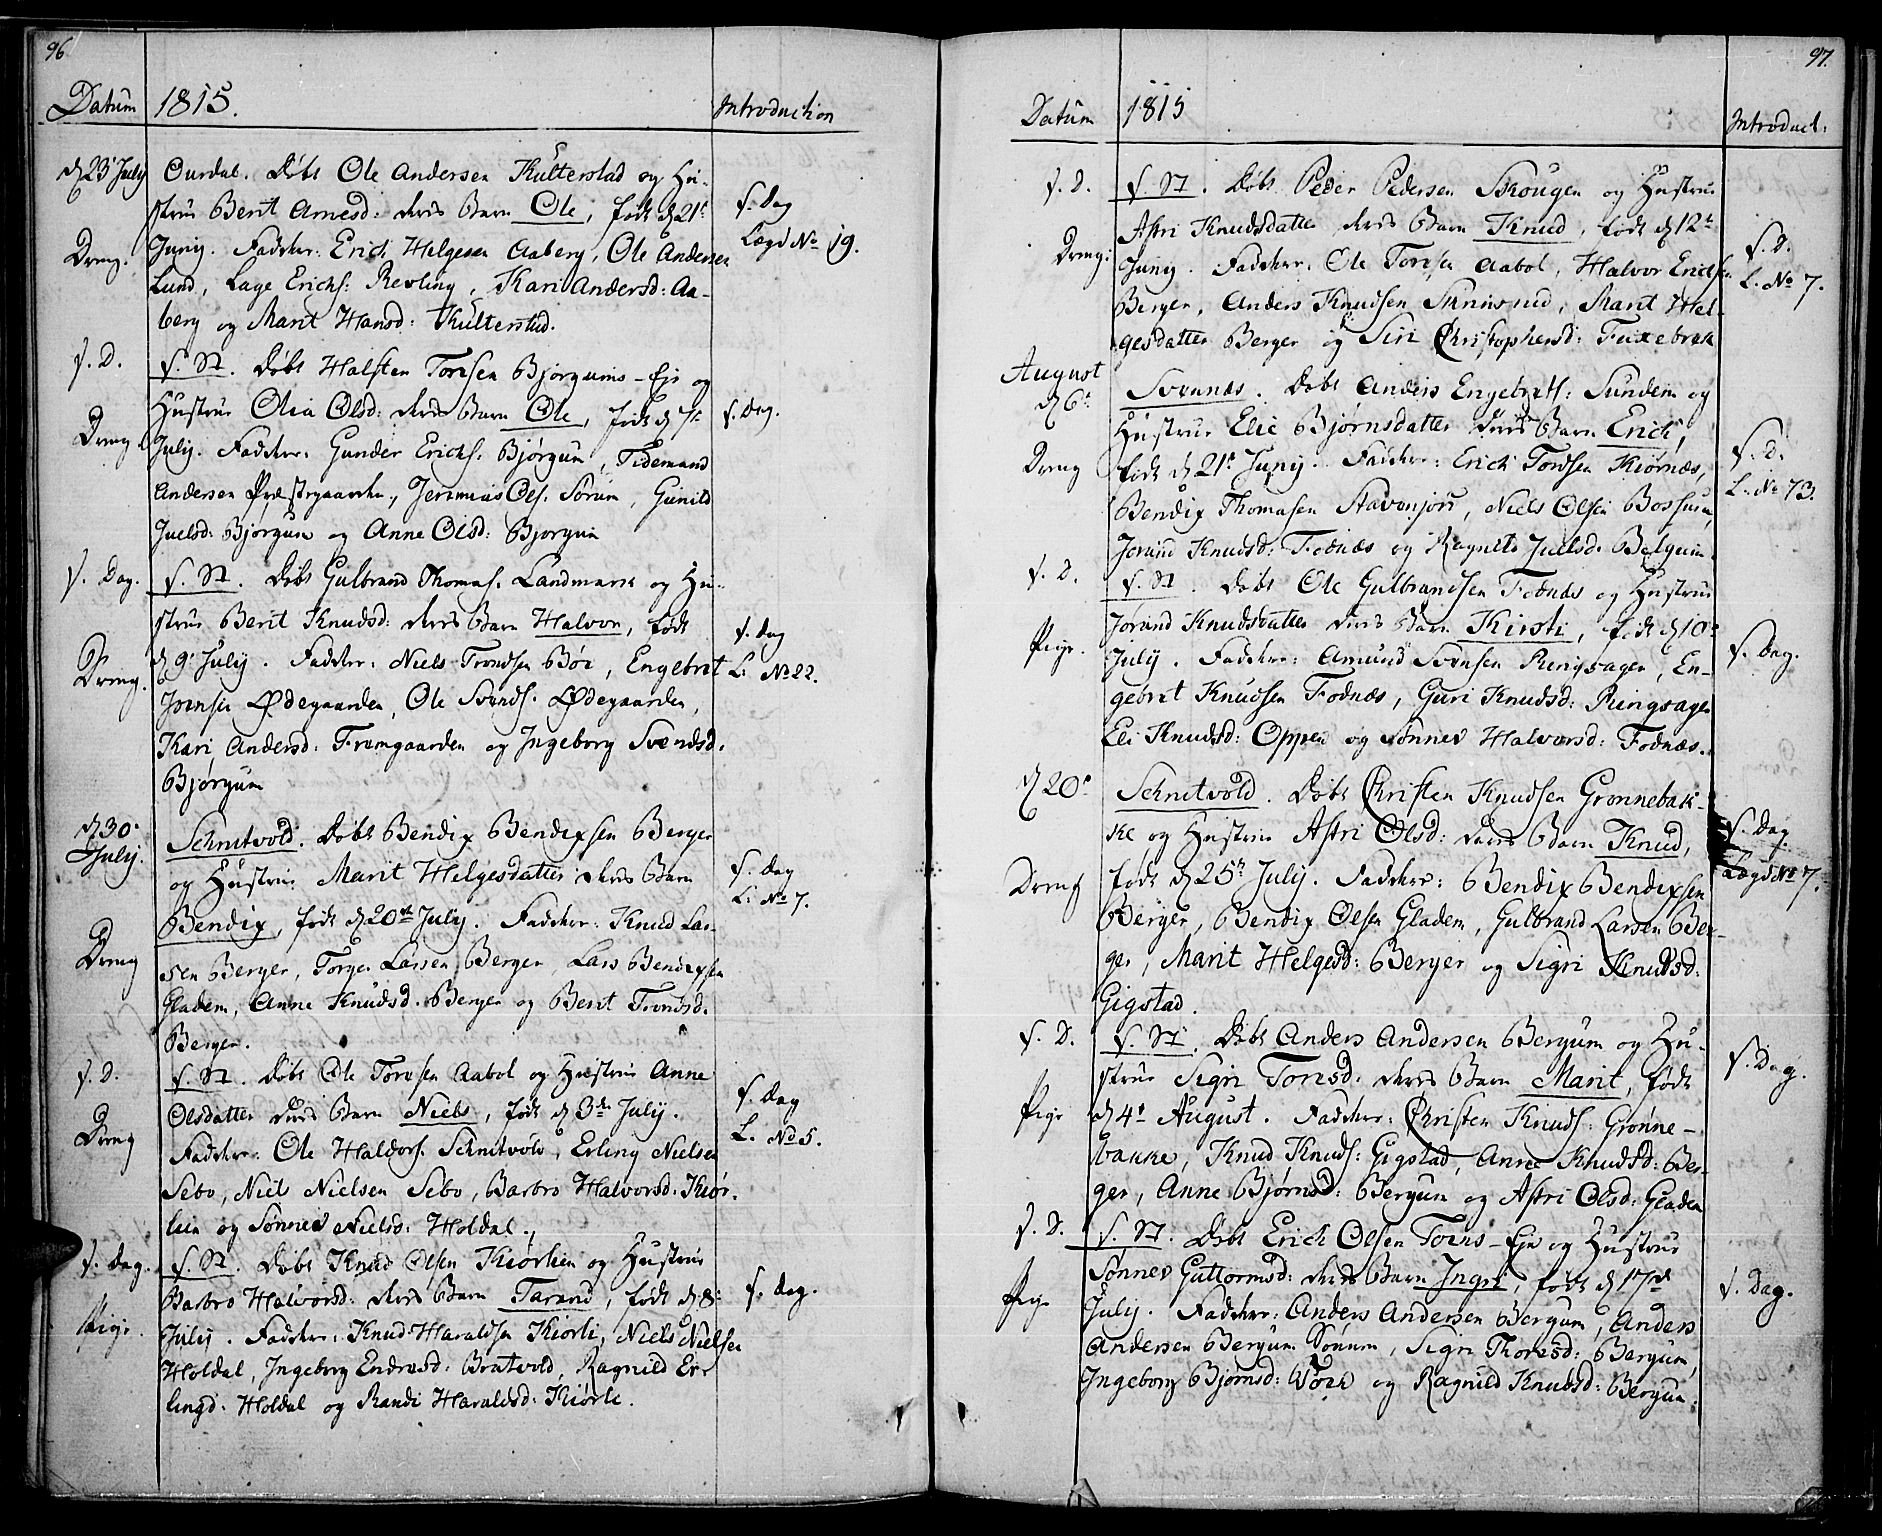 96
Datum 1815. Introduction
d 23' July Ourdal. Døbt Ole Andersen Kulterstad og Hu-
strue Berit Arnesd: deres Barn Ole, født d 21t
f. Dag
Dreng. Juny. Faddere: Erich Helgesen Aaberg, Ole Andersen
Lægd No 19.
Lund, Lage Erichs: Revling, Kari Andersd: Aa-
berg og Marit Hansd: Kulterstad.
f. D. f. St. Døbt Halsten Toresen Bjørgums-Eje og
Hustrue Olia Olsd: deres Barn Ole, født d 7t
f. Dag.
Dreng July. Faddere: Gunder Erichs: Bjørgum, Tidemand
Andersen Præstegaarden, Jeremias Ols. Sørum, Gunild
Juelsd: Bjørgum og Anne Olsd: Bjørgum
f. Dag. f. St. Døbt Gulbrand Thomas. Landmark og Hu-
strue Berit Knudsd: deres Barn Halvor, født
f. dag
Dreng. d 9' July. Faddere: Niels Trondsen Bøe, Engebret
L: No 22.
Joensen Ødegaarden, Ole Svends. Ødegaarden,
Kari Andersd: Fremgaarden og Ingeborg Svendsd.
Bjørgum
d 30' July. Schrutvold. Døbt Bendix Bendixsen Berger
og Hustrue Marit Helgesdatter deres Barn
f. dag
L: No 7.
Dreng Bendix, født d 20de July. Faddere: Knud Lar-
sen Berger, Torger Larsen Berger, Lars Bendixsen
Gladem, Anne Knudsd. Berger og Berit Trondsd.
Berger.
f. D. f. St. Døbt Ole Toresen Aabol og Hustrue Anne
Olsdatter deres Barn Niels, født d 3de July.
f. dag
Dreng Faddere: Ole Haldors. Schrutvold, Erling Nielsen
L. No 5.
Sebo, Niels Nielsen Sebo, Barbro Halvorsd: Kiør-
lien og Sønnev Nielsd: Holdal.
f. dag. f. St. Døbt Knud Olsen Kiørlien og Hustrue
Barbro Halvorsd: deres Barn Tarand, født d 8'
f. dag.
Pige. July. Faddere: Knud Haraldsen Kiørli, Niels Nielsen
Holdal, Ingeborg Endresd: Bratvold, Ragnild Er-
lingd: Holdal og Randi Haraldsd: Kiørle.
97.
Datum 1815 Introduct:
f. D. f. St. Døbt Peder Pedersen Skougen og Hustrue
Astri Knudsdatter deres Barn Knud, født d 12t
f. D.
Dreng: Juny. Faddere: Ole Toresen Aabol, Halvor Erichsen
L. No 7.
Berger, Anders Knudsen, Marit Hel-
gesdatter Berger og Siri Christophersd:
August d 6t Svennes. Døbt Anders Engebrets: Sundem og
Hustrue Elie Bjørnsdatter deres Barn Erich,
f. D.
Dreng født d 21t Juny. Faddere: Erich Tordsen Kiørnæs,
L: No 73.
Bendix Thomasen, Niels Olsen,
Jorand Knudsd: Fodnæs og Ragnild Juelsd:
f. D. f. St. Døbt Ole Gulbrandsen Fodnæs og Hustrue
Jorand Knudsdatter deres Barn Kirsti, født d 10'
f. Dag.
Pige. July. Faddere: Amund Svensen Ringsager, En-
gebret Knudsen Fodnæs, Guri Knudsd: Ringsager
Eli Knudsd: Oppen og Sønnev Halvorsd: Fodnæs.
d 20' Schrutvold. Døbt Christen Knudsen Grønnebak-
ke og Hustrue Astri Olsd: deres Barn Knud,
f. Dag
Lægd No 7.
Dreng født d 25te July. Faddere: Bendix Bendixsen
Berger, Bendix Olsen Gladem, Gulbrand Larsen Ber-
ger, Marit Helgesd: Berger og Sigri Knudsd:
Gigstad.
f. D. f. St. Døbt Anders Andersen Bergum og Hu-
strue Sigri Toresd: deres Barn Marit, født
f. Dag.
Pige d 4t August. Faddere: Christen Knuds: Grønne-
bakke, Knud Knuds: Gigstad, Anne Knudsd: Ber-
ger, Anne Bjørnsd: Bergum og Astri Olsd: Gladem
f. D. f. St. Døbt Erich Olsen-Eje og Hustrue
Sønnev Guttormsd: deres Barn Ingri, født d 17de
f. Dag.
Pige July. Faddere: Anders Andersen Bergum, Anders
Andersen Bergum, Sigri Thoresd: Bergum,
Ingeborg Bjørnsd: og Ragnild Knudsd: Bergum.